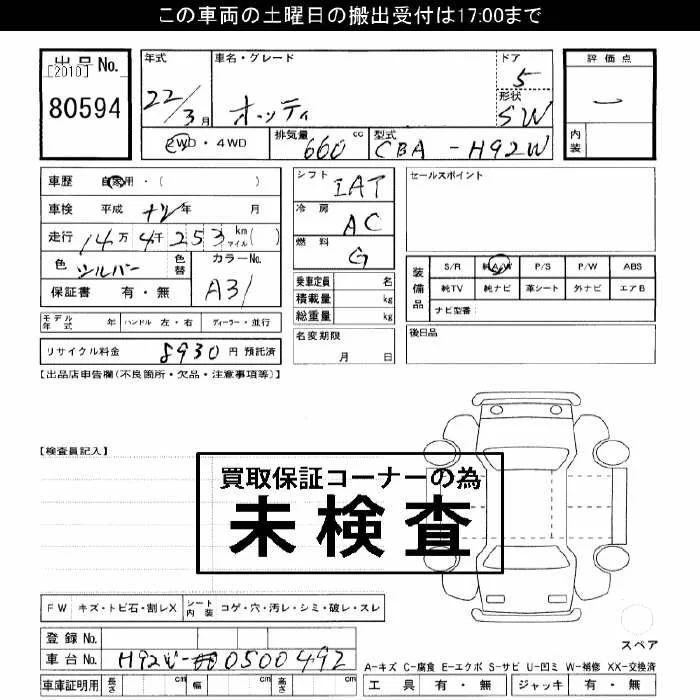 この車両の土曜日の搬出受付は17:00まで
出品No.
[2010]
80594
年式
22/3月
車名・グレード
オッティ
ドア
5
形状
SW
評価点
ー
内装
2WD・4WD
排気量
660 cc
型式
CBA-H92W
車歴 自家用・( )
車検 平成 年 月
走行 14万4千253 km マイル( )
色 シルバー
色替
カラーNo.
A31
保証書 有・無
シフト
IAT
冷房
AC
燃料
G
乗車定員 名
積載量 kg
総重量 kg
名変期限
月 日
セールスポイント
装備品
S/R 純A/W P/S P/W ABS
純TV 純ナビ 革シート 外ナビ エアB
ナビ型番:
後日品
モデル年式 年 ハンドル 左・右 ディーラー・並行
リサイクル料金 8930 円 預託済
【出品店申告欄(不良箇所・欠品・注意事項等)】
【検査員記入】
買取保証コーナーの為
未検査
FW キズ・トビ石・割レX シート内装 コゲ・穴・汚レ・シミ・破レ・スレ
登録No.
車台No. H92W-0500492
車庫証明用 長さ 幅 高さ
スペア
A-キズ C-腐食 E-エクボ S-サビ U-凹ミ W-補修 XX-交換済
工具 有・無 ジャッキ 有・無